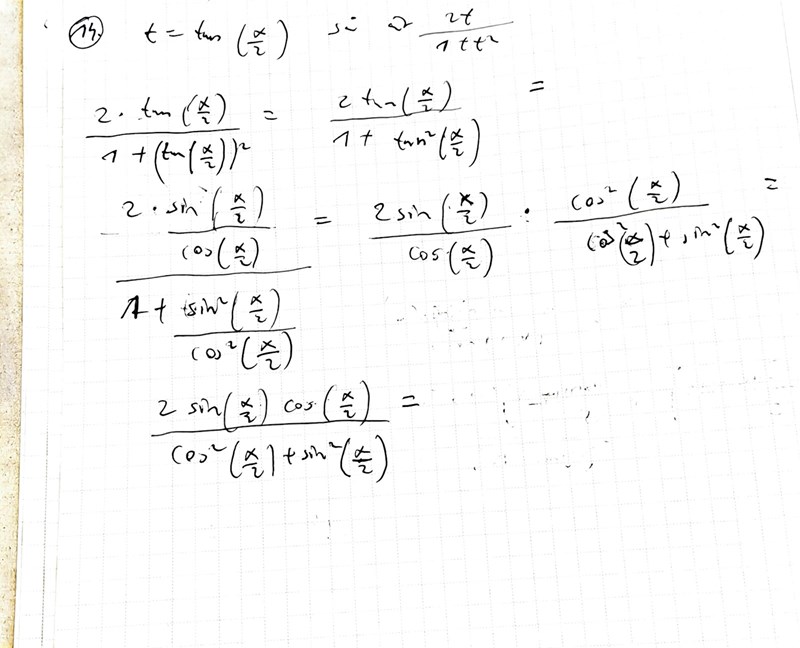 14. t = tan (α/2) si 2t/(1+t²)
2 · tan(α/2) / (1 + (tan(α/2))²) = 2 tan(α/2) / (1 + tan²(α/2)) =
(2 · sin(α/2)/cos(α/2)) / (1 + sin²(α/2)/cos²(α/2)) = 2 sin(α/2)/cos(α/2) · cos²(α/2) / (cos²(α/2) + sin²(α/2)) =
2 sin(α/2) cos(α/2) / (cos²(α/2) + sin²(α/2)) =